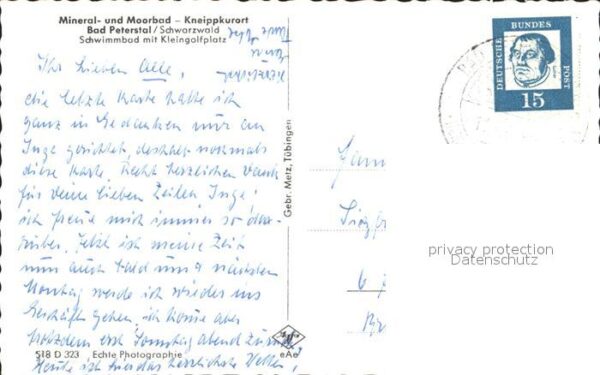 Mineral- und Moorbad – Kneippkurort
Bad Peterstal / Schwarzwald
Schwimmbad mit Kleingolfplatz
Ihr Lieben Alle,
die letzte Karte hatte ich
ganz in Gedanken nur an
Inge gerichtet, deshalb nochmals
diese Karte. Recht herzlichen Dank
für Deine lieben Zeilen Inge,
ich freue mich immer so da-
rüber. Jetzt ist meine Zeit
nun auch bald um & nächsten
Montag werde ich wieder ins
Geschäft gehen, ich komme aber
trotzdem erst Sonntag abend zurück.
Heute ist hier das herrlichste Wetter,
518 D 323 Echte Photographie
Gebr. Metz, Tübingen
Agfa
eAo
DEUTSCHE BUNDES POST
15
privacy protection
Datenschutz